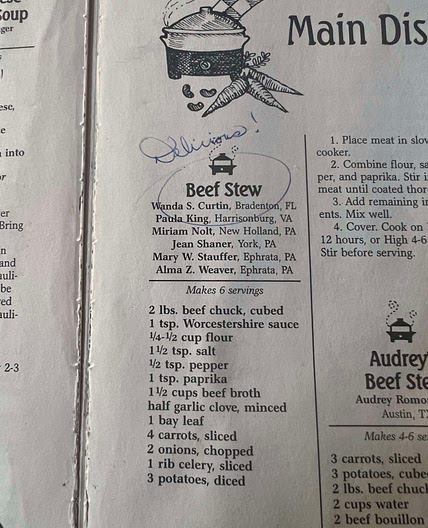 Soup
ger
ese,
into
or
er
Bring
n
and
auli-
be
ed
auli-
2-3
Main Dis
Delicious!
Beef Stew
Wanda S. Curtin, Bradenton, FL
Paula King, Harrisonburg, VA
Miriam Nolt, New Holland, PA
Jean Shaner, York, PA
Mary W. Stauffer, Ephrata, PA
Alma Z. Weaver, Ephrata, PA
Makes 6 servings
2 lbs. beef chuck, cubed
1 tsp. Worcestershire sauce
1/4-1/2 cup flour
1 1/2 tsp. salt
1/2 tsp. pepper
1 tsp. paprika
1 1/2 cups beef broth
half garlic clove, minced
1 bay leaf
4 carrots, sliced
2 onions, chopped
1 rib celery, sliced
3 potatoes, diced
1. Place meat in slow
cooker.
2. Combine flour, sa
per, and paprika. Stir i
meat until coated thor
3. Add remaining in
ents. Mix well.
4. Cover. Cook on
12 hours, or High 4-6
Stir before serving.
Audrey'
Beef Ste
Audrey Romo
Austin, TX
Makes 4-6 se
3 carrots, sliced
3 potatoes, cube
2 lbs. beef chuck
2 cups water
2 beef bouillon